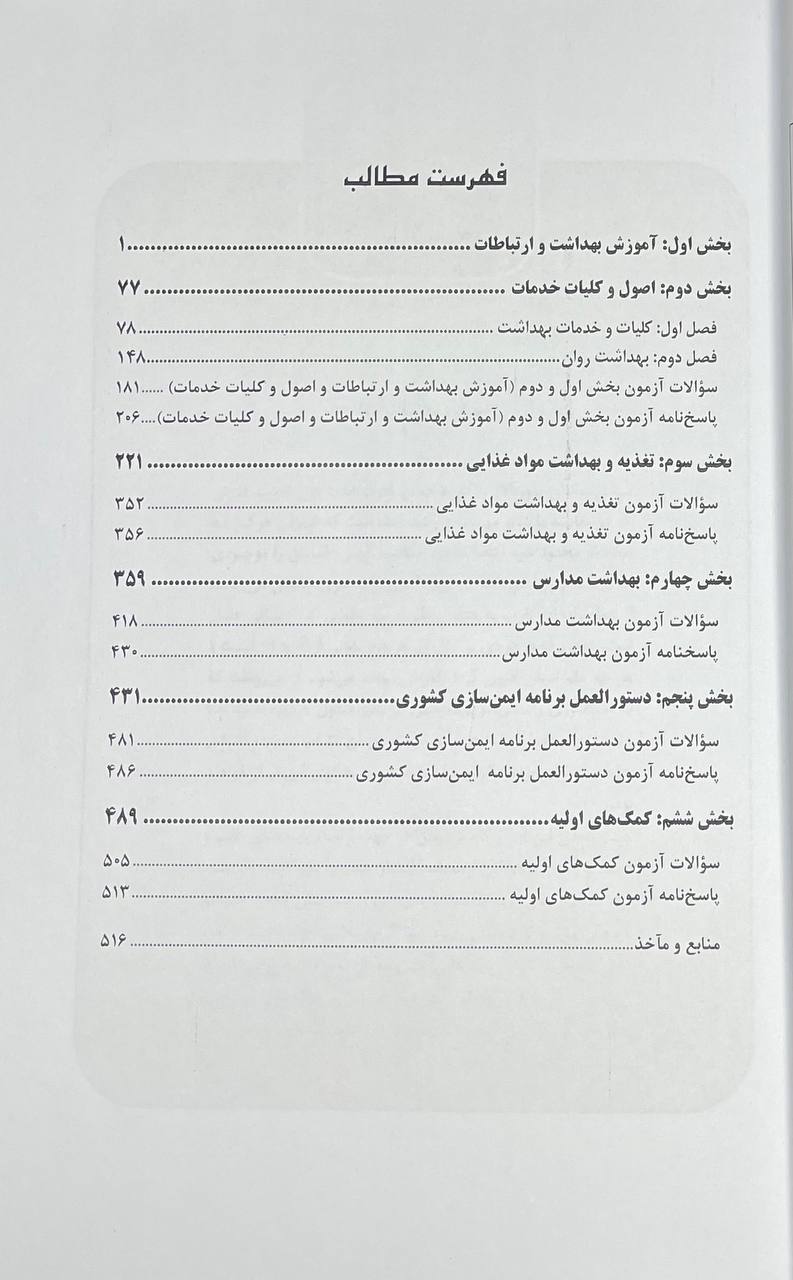 فهرست مطالب
بخش اول: آموزش بهداشت و ارتباطات ........ ۱
بخش دوم: اصول و کلیات خدمات ........ ۷۷
فصل اول: کلیات و خدمات بهداشت ........ ۷۸
فصل دوم: بهداشت روان ........ ۱۴۸
سؤالات آزمون بخش اول و دوم (آموزش بهداشت و ارتباطات و اصول و کلیات خدمات) ...... ۱۸۱
پاسخ‌نامه آزمون بخش اول و دوم (آموزش بهداشت و ارتباطات و اصول و کلیات خدمات) .... ۲۰۶
بخش سوم: تغذیه و بهداشت مواد غذایی ........ ۲۲۱
سؤالات آزمون تغذیه و بهداشت مواد غذایی ........ ۳۵۲
پاسخ‌نامه آزمون تغذیه و بهداشت مواد غذایی ........ ۳۵۶
بخش چهارم: بهداشت مدارس ........ ۳۵۹
سؤالات آزمون بهداشت مدارس ........ ۴۱۸
پاسخنامه آزمون بهداشت مدارس ........ ۴۳۰
بخش پنجم: دستورالعمل برنامه ایمن‌سازی کشوری ........ ۴۳۱
سؤالات آزمون دستورالعمل برنامه ایمن‌سازی کشوری ........ ۴۸۱
پاسخ‌نامه آزمون دستورالعمل برنامه ایمن‌سازی کشوری ........ ۴۸۶
بخش ششم: کمک‌های اولیه ........ ۴۸۹
سؤالات آزمون کمک‌های اولیه ........ ۵۰۵
پاسخ‌نامه آزمون کمک‌های اولیه ........ ۵۱۳
منابع و مآخذ ........ ۵۱۶